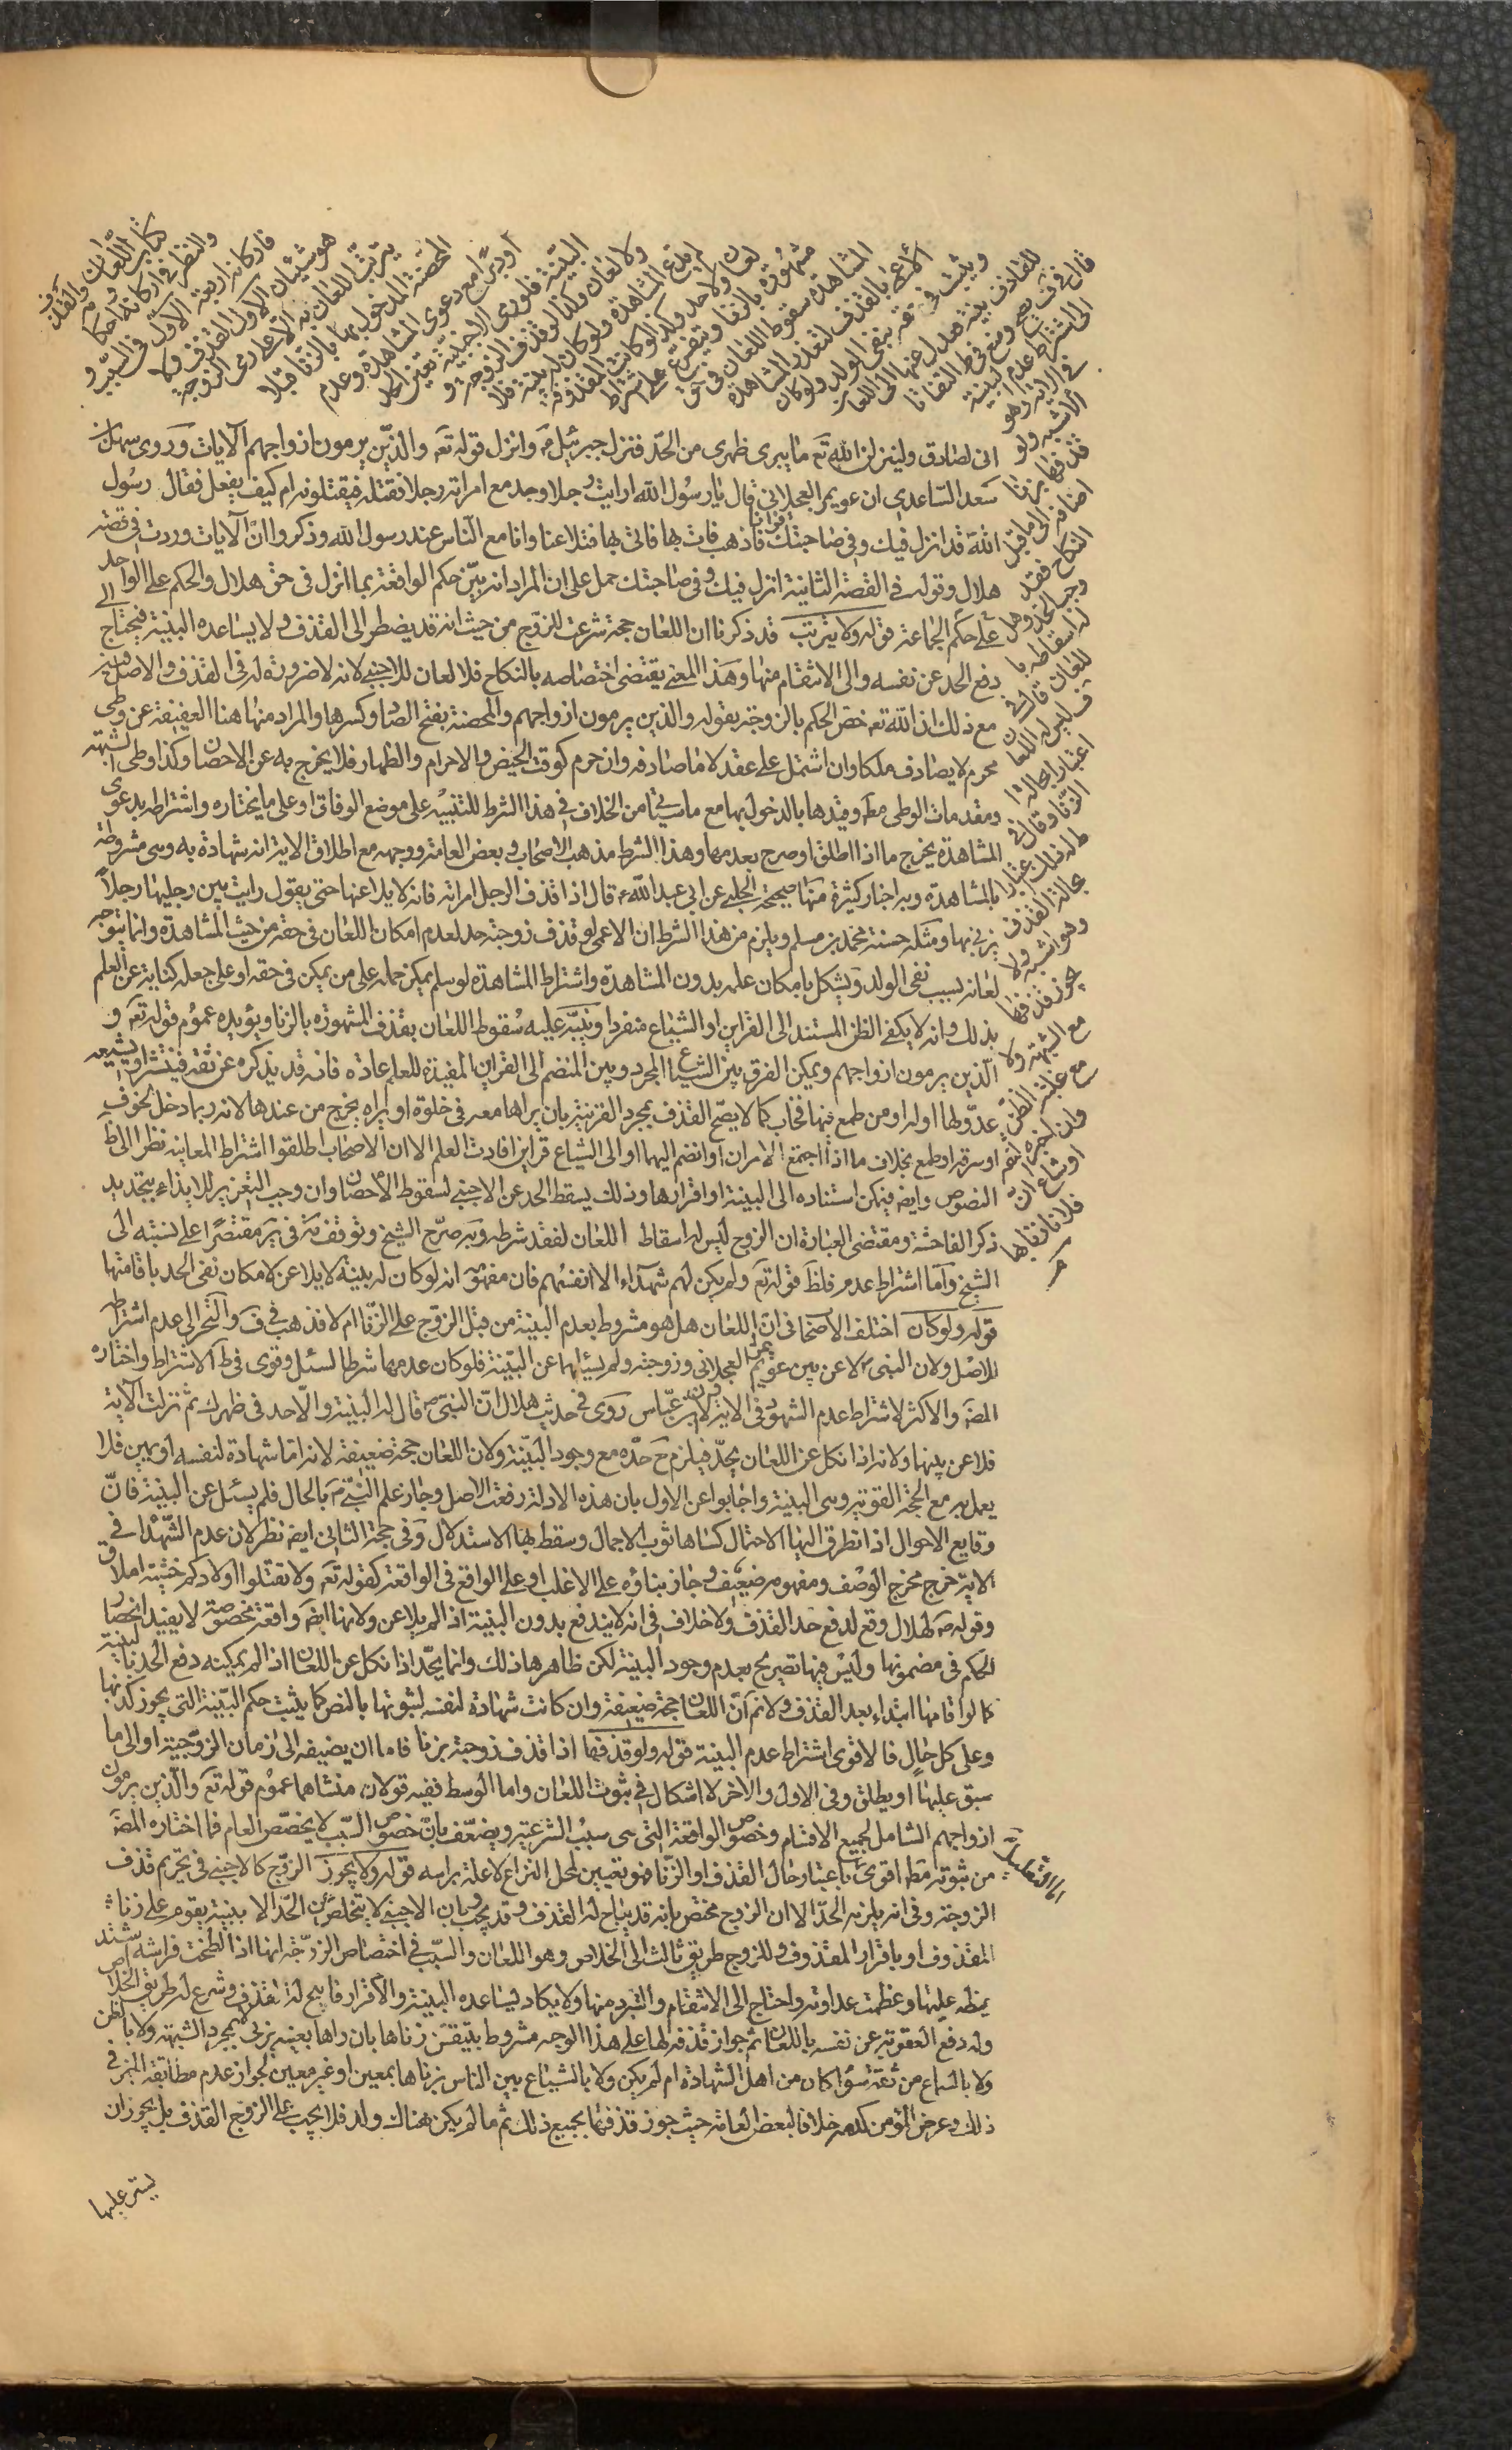 كتاب اللعان
والنظر في اركانه واحكامه
فاركانه اربعة الاول في السبب و
هو شيئان الاول القذف ولا
يترتب اللعان به الا على رمى الزوجة
المحصنة المدخول بها بالزنا قبلا
او دبرا مع دعوى المشاهدة وعدم
البينة فلو رمى الاجنبية تعين الحد
ولا لعان وكذا لو قذف الزوجة و
لم يدع المشاهدة ولو كان له بينة فلا
لعان ولا حد وكذا لو كانت المقذوفة
مشهورة بالزنا ويتفرع على اشتراط
المشاهدة سقوط اللعان في حق
الاعمى بالقذف لتعذر المشاهدة
ويثبت في حقه بنفى الولد ولو كان
للقاذف بينة فعدل عنها الى اللعان
قال في ف يصح ومنع في ط التفاتا
الى اشتراط عدم البينة
في الاية وهو
الاشبه ولو
قذفها بزنا
اضافه الى ما قبل
النكاح فقد
وجب الحد وهل
له اسقاطه با
للعان قال في
ف ليس له اللعان
اعتبارا بحالة
الزنا وقال في
ط له ذلك اعتبارا
بحالة القذف
وهو اشبه ولا
يجوز قذفها
مع الشبهة ولا
مع غلبة الظن
وان اخبره الثقة
او شاع ان
فلانا زنا بها
انى لصادق ولينزلن الله تع ما يبرى ظهرى من الحد فنزل جبرئيل م وانزل قوله تع والذين يرمون ازواجهم الآيات وروى سهل بن
سعد الساعدي ان عويمر العجلانى قال يا رسول الله ارايت رجلا وجد مع امراته رجلا فقتله فيقتلونه ام كيف يفعل فقال رسول
الله قد انزل فيك وفي صاحبتك قرانا فاذهب فات بها فاتى بها فتلاعنا وانا مع الناس عند رسول الله وذكروا ان الآيات وردت في قصة
هلال وقوله في القصة الثانية انزل فيك وفي صاحبتك حمل على ان المراد انه بين حكم الواقعة بما انزل في حق هلال والحكم على الواحد
على حكم الجماعة قوله ولا يترتب قد ذكرنا ان اللعان حجة شرعت للزوج من حيث انه قد يضطر الى القذف ولا يساعده البينة فيحتاج الى
دفع الحد عن نفسه والى الانتقام منها وهذا المعنى يقتضى اختصاصه بالنكاح فلا لعان للاجنبى لانه لا ضرورة له في القذف والاصل فيه
مع ذلك ان الله تع خص الحكم بالزوجة بقوله والذين يرمون ازواجهم والمحصنة بفتح الصاد وكسرها والمراد منها هنا العفيفة عن وطى
محرم لا يصادف ملكا وان اشتمل على عقد لا ما صادفه وان حرم كوقت الحيض والاحرام والظهار فلا يخرج به عن الاحصان وكذا وطى الشبهة
ومقدمات الوطى مط وقيدها بالدخول بها مع ما سياتى من الخلاف في هذا الشرط للتنبيه على موضع الوفاق او على ما يختاره واشتراطه بدعوى
المشاهدة يخرج ما اذا اطلق او صرح بعدمها وهذا الشرط مذهب الاصحاب وبعض العامة ووجهه مع اطلاق الاية انه شهادة به وهى مشروطة
بالمشاهدة وبه اخبار كثيرة منها صحيحة الحلبى عن ابى عبد الله ع قال اذا قذف الرجل امراته فانه لا يلاعنها حتى يقول رايت بين رجليها رجلا
يزنى بها ومثله حسنة محمد بن مسلم ويلزم من هذا الشرط ان الاعمى لو قذف زوجته حد لعدم امكان اللعان في حقه من حيث المشاهدة وانما يتوجه
لعانه بسبب نفى الولد ويشكل بامكان علمه بدون المشاهدة واشتراط المشاهدة لو سلم يمكن حمله على من يمكن في حقه او على جعله كناية عن العلم
بذلك وانه لا يكفى الظن المستند الى القراين او الشياع منفردا ونبه عليه سقوط اللعان بقذف المشهورة بالزنا ويؤيده عموم قوله تع و
الذين يرمون ازواجهم ويمكن الفرق بين الشياع المجرد وبين المنضم الى القراين المفيدة للعلم عادة فانه قد يذكره عن ثقة فينتشر او يشيعه
عدو لها او له او من طمع فيها فخاب كما لا يصح القذف بمجرد القرينة بان يراها معه في خلوة او يراه يخرج من عندها لانه ربما دخل لخوف
او سرقة او طمع بخلاف ما اذا اجتمع الامران او انضم اليهما او الى الشياع قراين افادت العلم الا ان الاصحاب اطلقوا اشتراط المعاينة نظرا الى
النصوص وايض فيمكن استناده الى البينة او اقرارها وذلك يسقط الحد عن الاجنبى لسقوط الاحصان وان وجب التعزير للايذاء بتجديد
ذكر الفاحشة ومقتضى العبارة ان الزوج ليس له اسقاط اللعان لفقد شرطه وبه صرح الشيخ وتوقف فيه في ير مقتصرا على نسبته الى
الشيخ واما اشتراط عدم فلظ قوله تع ولم يكن لهم شهداء الا انفسهم فان مفهومه انه لو كان له بينة لا يلاعن لامكان نفى الحد باقامتها
قوله ولو كان اختلف الاصحاب في ان اللعان هل هو مشروط بعدم البينة من قبل الزوج على الزنا ام لا فذهب في ف والتحرير الى عدم اشتراط
للاصل ولان النبى ص لاعن بين عويمر العجلانى وزوجته ولم يسئلهما عن البينة فلو كان عدمها شرطا لسئل وقوى في ط الاشتراط واختاره
المص والاكثر لاشتراط عدم الشهود في الاية ولان ابن عباس روى في حديث هلال ان النبى ص قال له البينة والا حد في ظهرك ثم نزلت الآية
فلاعن بينهما ولانه اذا نكل عن اللعان يحد فيلزم ح حده مع وجود البينة ولان اللعان حجة ضعيفة لانه اما شهادة لنفسه او يمين فلا
يعمل به مع الحجة القوية وهى البينة واجابوا عن الاول بان هذه الادلة رفعت الاصل وجاز علم النبى م بالحال فلم يسئل عن البينة فان
وقايع الاحوال اذا تطرق اليها الاحتمال كساها ثوب الاجمال وسقط بها الاستدلال وفى حجة الثانى ايض نظر لان عدم الشهداء في
الاية خرج مخرج الوصف ومفهومه ضعيف وجاز بناؤه على الاغلب او على الواقع في الواقعة كقوله تع ولا تقتلوا اولادكم خشية املاق
وقوله ص لهلال وقع لدفع حد القذف ولا خلاف في انه لا يندفع بدون البينة اذا لم يلاعن ولانها ايض واقعة مخصوصة لا يفيد انحصار
الحكم في مضمونها وليس فيها تصريح بعدم وجود البينة لكن ظاهرها ذلك وانما يحد اذا نكل عن اللعان اذا لم يمكنه دفع الحد بالبينة
كما لو اقامها ابتداء بعد القذف ولا نم ان اللعان حجة ضعيفة وان كانت شهادة لنفسه لثبوتها بالنص كما يثبت حكم البينة التى يجوز كذبها
وعلى كل حال فالاقوى اشتراط عدم البينة قوله ولو قذفها اذا قذف زوجته بزنا فاما ان يضيفه الى زمان الزوجية او الى ما
سبق عليها او يطلق وفى الاول والاخر لا اشكال في ثبوت اللعان واما الوسط ففيه قولان منشاهما عموم قوله تع والذين يرمون
ازواجهم الشامل لجميع الاقسام وخصوص الواقعة التى هى سبب الشرعية ويضعف بان خصوص السبب لا يخصص العام فما اختاره المص
من ثبوته مط اقوى اما التعليل باعتبار حال القذف او الزنا فهو تعيين لمحل النزاع لا علة براسه قوله ولا يجوز الزوج كالاجنبى في تحريم قذف
الزوجة وفى انه يلزمه الحد الا ان الزوج مختص بانه قد يباح له القذف وقد يجب وبان الاجنبى لا يتخلص من الحد الا ببينة يقوم على زنا
المقذوف او باقرار المقذوف وللزوج طريق ثالث الى الخلاص وهو اللعان والسبب في اختصاص الزوجة انها اذا لطخت فراشه يشتد
غيظه عليها وعظمت عداوته واحتاج الى الانتقام والتبرء منها ولا يكاد يساعده البينة والاقرار فابيح له القذف وشرع له طريق الخلاص
وله دفع العقوبة عن نفسه باللعان ثم جواز قذفه لها على هذا الوجه مشروط بتيقن زناها بان راها بعينه يزنى لا بمجرد الشبهة ولا بالظن
ولا بالسماع من ثقة سواء كان من اهل الشهادة ام لم يكن ولا بالشياع بين الناس بزناها بمعين او غير معين لجواز عدم مطابقة الخبر في
ذلك وعرض المؤمن كدمه خلافا لبعض العامة حيث جوز قذفها بجميع ذلك ثم ما لم يكن هناك ولد فلا يجب على الزوج القذف بل يجوز ان
يستر عليها